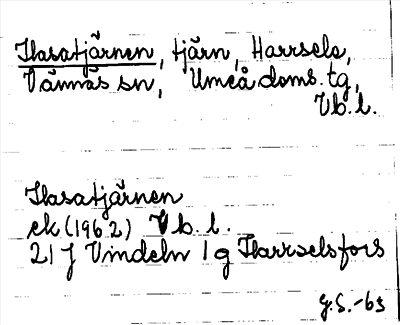 Hasatjärnen, tjärn, Harrsele,
Vännäs sn, Umeå doms. tg,
Vb. l.
Hasatjärnen
ek (1962) Vb. l.
21 J Vindeln 1 g Harrselsfors
G.S. -63